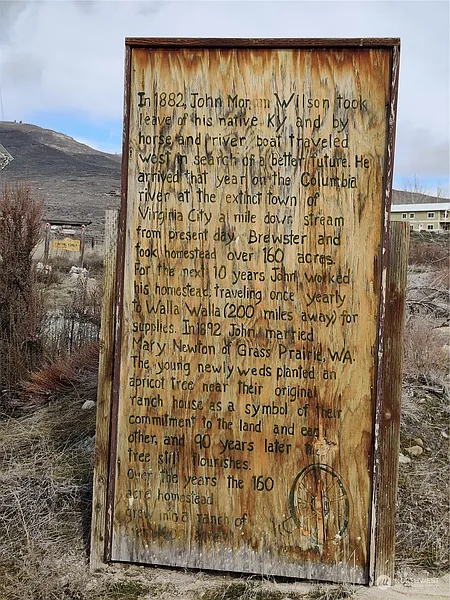 In 1882, John Mor Wilson took
leave of his native Ky. and by
horse and river boat traveled
west in search of a better future. He
arrived that year on the Columbia
river at the extinct town of
Virginia City a mile down stream
from present day Brewster and
took homestead over 160 acres.
For the next 10 years John worked
his homestead, traveling once yearly
to Walla Walla (200 miles away) for
supplies. In 1892 John married
Mary Newton of Grass Prairie, WA.
The young newlyweds planted an
apricot tree near their original
ranch house as a symbol of their
commitment to the land and each
other, and 90 years later
tree still flourishes.
Over the years the 160
acre homestead
grew into a ranch of